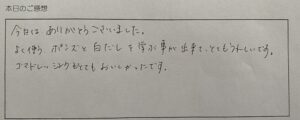 本日のご感想
今日は ありがとうございました。
よく使う ポンズと 白だしを 学ぶ事が 出来て、とてもうれしいです。
ゴマドレッシングもとても おいしかったです。